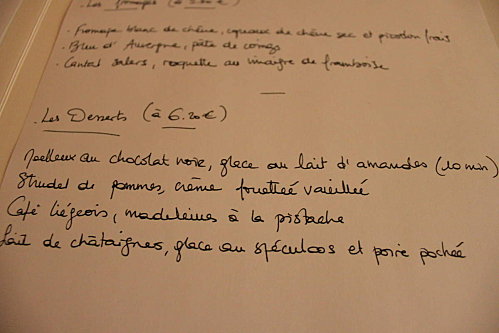 . Les Fromages (à 7.80€)
. Fromage blanc de chèvre, copeaux de chèvre sec et picodon frais
. Bleu d'Auvergne, pâte de coings
. Cantal salers, roquette au vinaigre de framboise
. Les Desserts (à 6.20€)
Moelleux au chocolat noir, glace au lait d'amandes (10 min)
Strudel de pommes, crème fouettée vanillée
Café liégeois, madeleines à la pistache
Lait de châtaignes, glace au spéculoos et poire pochée